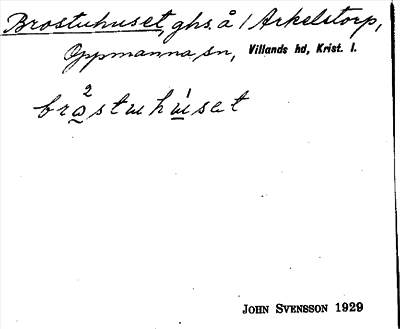 Brostuhuset, ghs. å 1 Arkelstorp,
Oppmanna sn, Villands hd, Krist. l.
bro²stuhu̍set
JOHN SVENSSON 1929